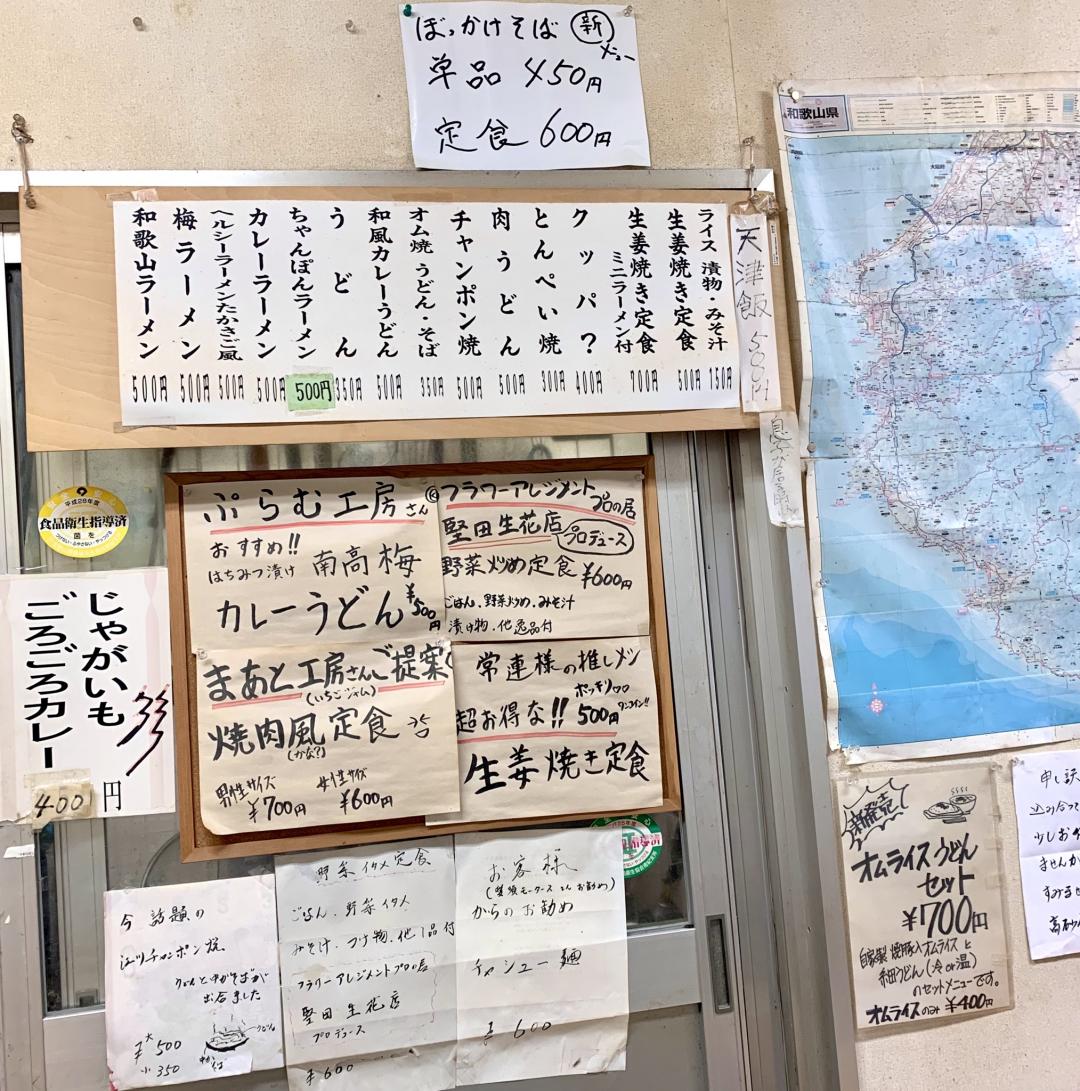 ぼっかけそば 新メニュー
単品 450円
定食 600円
和歌山県
ライス 漬物・みそ汁 150円
生姜焼き定食 500円
生姜焼き定食 ミニラーメン付 700円
クッパ? 400円
とんぺい焼 300円
肉うどん 500円
チャンポン焼 500円
オム焼 うどん・そば 350円
和風カレーうどん 500円
うどん 350円
ちゃんぽんラーメン 500円
カレーラーメン 500円
ヘルシーラーメンたかさご風 500円
梅ラーメン 500円
和歌山ラーメン 500円
天津飯 500円
平成28年度
食品衛生指導済
菌を
つけない・ふやさない・やっつける
じゃがいも
ごろごろカレー
400円
ぷらむ工房さん
おすすめ!!
はちみつ漬け 南高梅
カレーうどん ¥500円
フラワーアレジメント
プロの店
堅田生花店 プロデュース
野菜炒め定食 ¥600円
ごはん、野菜炒め、みそ汁
漬け物、他逸品付
まあと工房さんご提案
(いちごジャム)
焼肉風定食
(かな?)
男性サイズ ¥700円
女性サイズ ¥600円
常連様の推しメン
超お得な!! ポッキリ 500円 ワンコイン!!
生姜焼き定食
今話題の
江川チャンポン焼
うどんと中かそばが
出合ました
大 ¥500
小 350
うどん
中か
そば
野菜イタメ定食
ごはん、野菜イタメ
みそ汁、つけ物、他1品付
フラワーアレジメントプロの店
堅田生花店
プロデュース
¥600
お客様
からのお勧め
チャシュー麺
¥600
新発売
オムライスうどん
セット
¥700円
自家製焼豚入オムライスと
素うどん(冷or温)
のセットメニューです。
オムライスのみ ¥400円
申し訳
込み合って
少しお
ませんか
すみませ